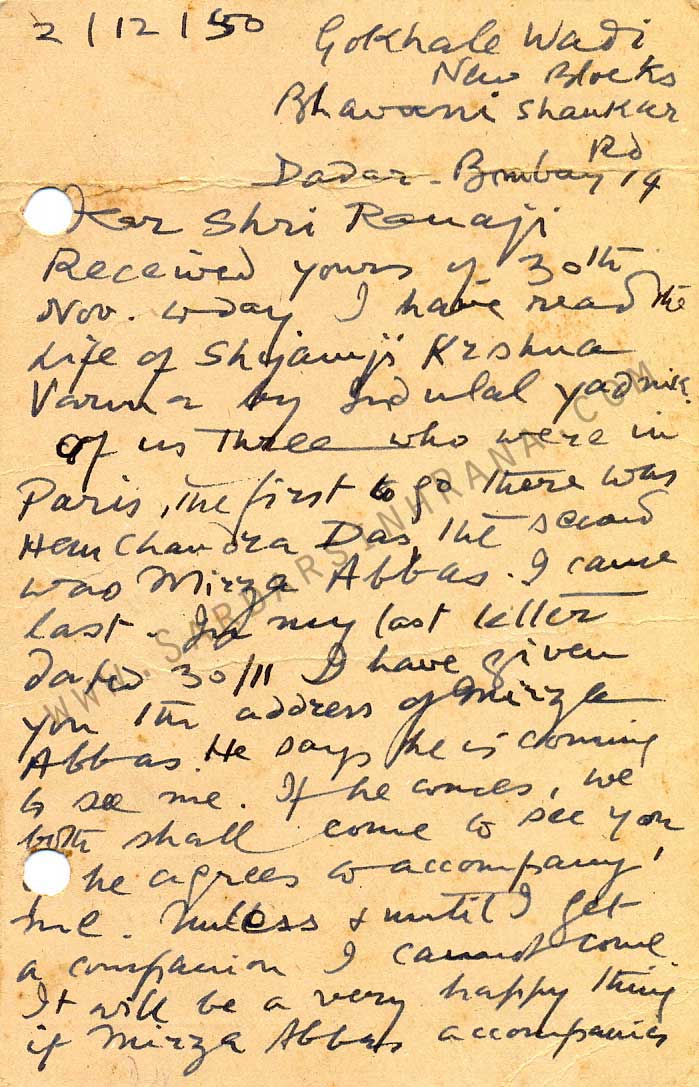 2/12/50
Gokhale Wadi
New Blocks
Bhavani Shankar
Rd
Dadar - Bombay 14
Dear Shri Ranaji
Received yours of 30th
Nov. today I have read the
Life of Shyamji Krshna
Varma by Indulal Yadnik.
Of us three who were in
Paris, the first to go there was
Hem Chandra Das, the second
was Mirza Abbas. I came
last. In my last letter
dated 30/11 I have given
you the address of Mirza
Abbas. He says he is coming
to see me. If he comes, we
both shall come to see you
he agrees to accompany
me. Unless & until I get
a companion I cannot come.
It will be a very happy thing
if Mirza Abbas accompanies
WWW.SARDARSINHRANA.COM